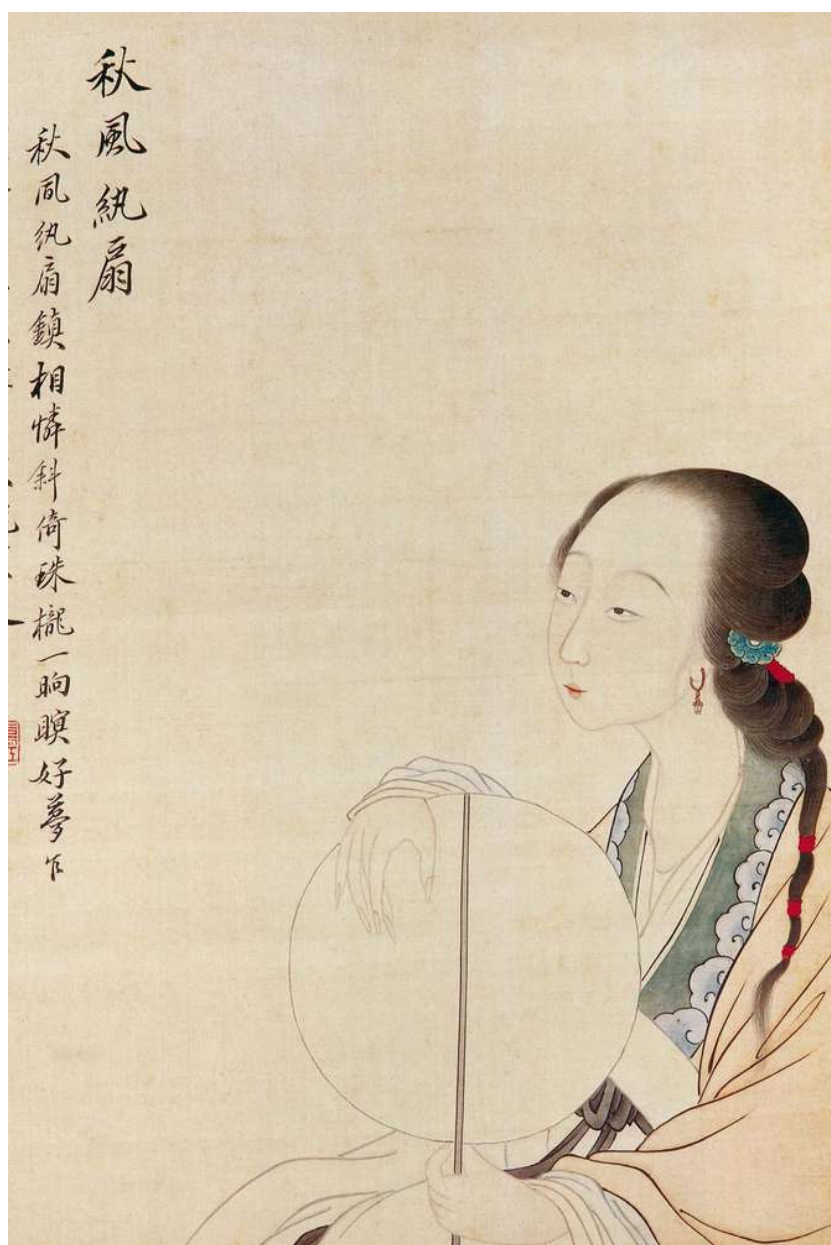 秋風紈扇
秋風紈扇鎮相憐斜倚珠櫳一晌暝好夢乍